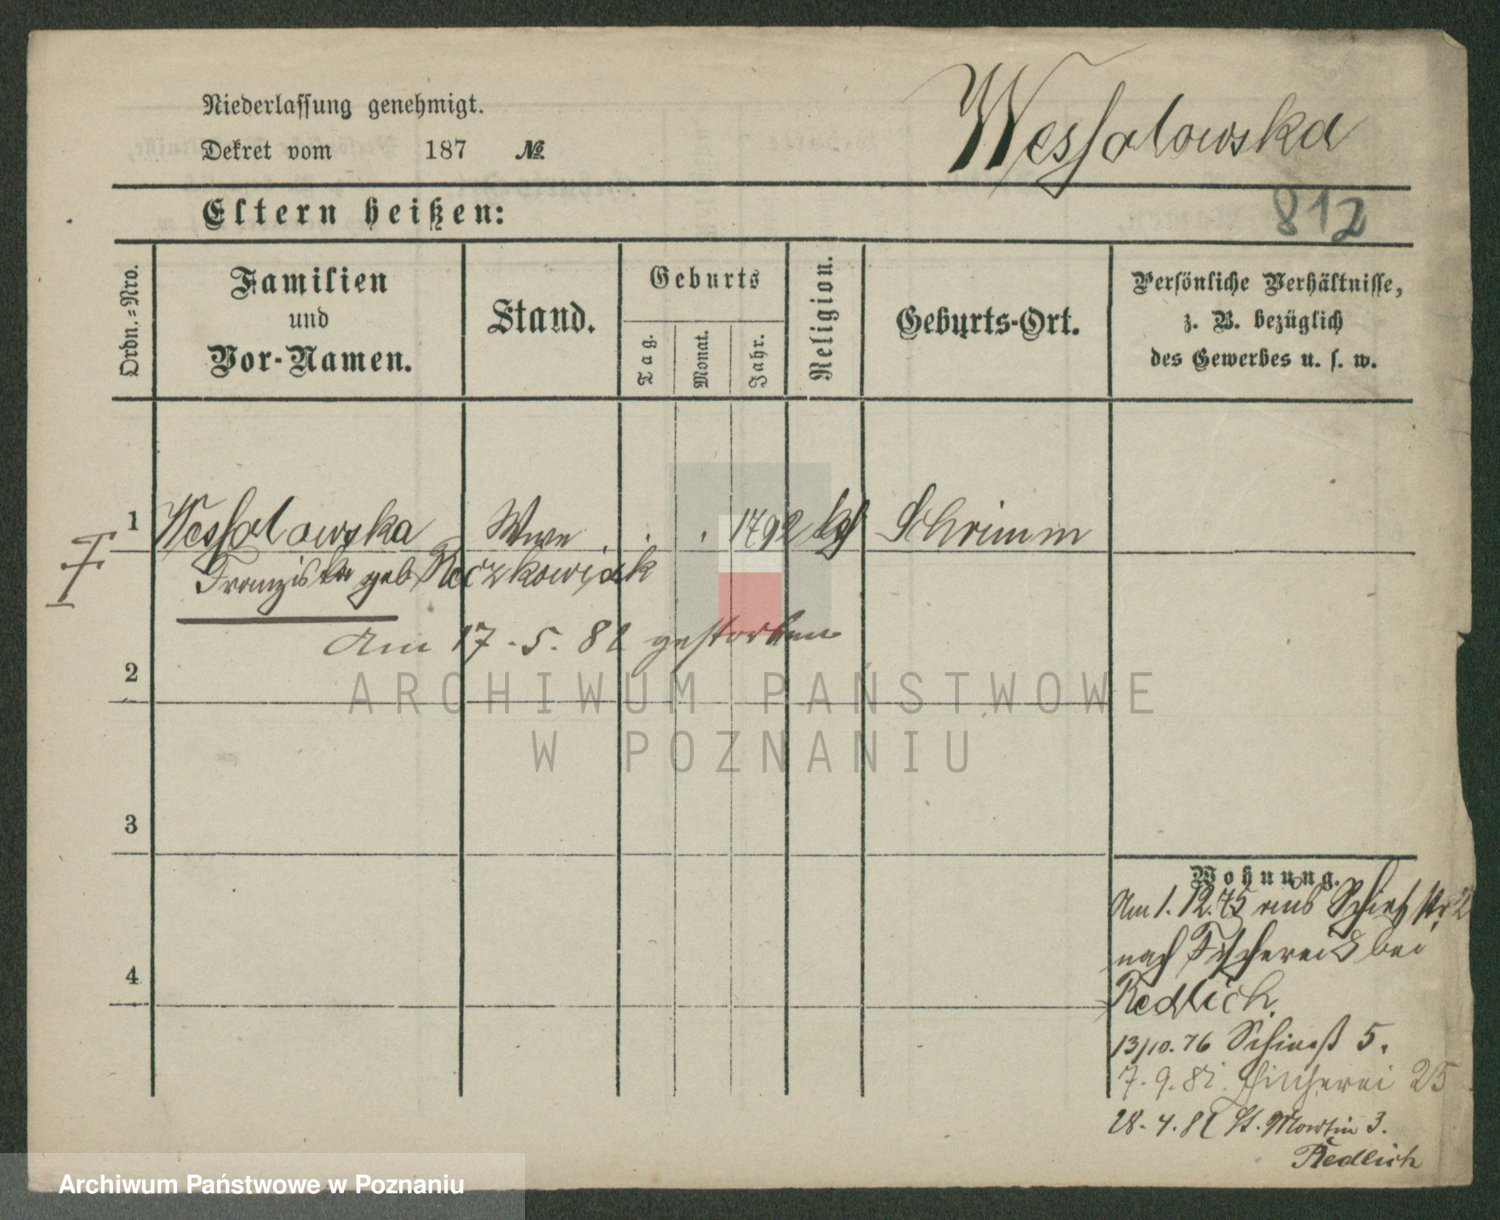 Niederlassung genehmigt.
Dekret vom 187 №
Wessolowska
Eltern heißen:
812
Ordn.=Nro.
Familien
und
Vor-Namen.
Stand.
Geburts
Tag.
Monat.
Jahr.
Religion.
Geburts-Ort.
Persönliche Verhältnisse,
z. B. bezüglich
des Gewerbes u. s. w.
1 Wessolowska Wwe . . . 1792 kf Schrimm
Franziska geb.
Am 17.5.82 gestorben
2
ARCHIWUM PAŃSTWOWE
W POZNANIU
3
4
Wohnung.
Am 1.12.75 aus Schießstr 2
nach Fischerei 8 bei
Redlich.
13/10.76 Schieß 5.
7.9.81. Fischerei 25
28.4.82 St. Martin 3.
Redlich
Archiwum Państwowe w Poznaniu